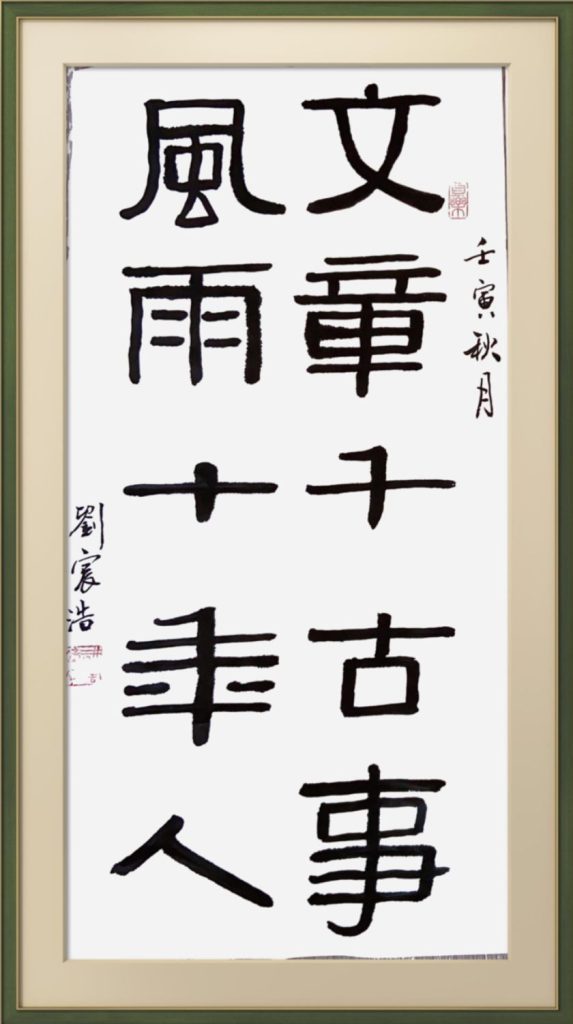 壬寅秋月
文章千古事
風雨十年人
劉宸浩